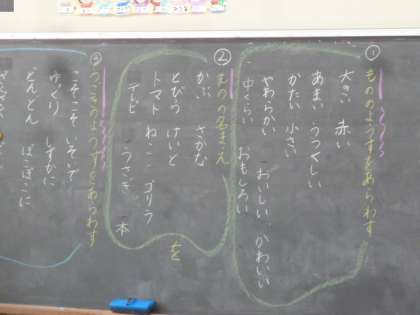 ①
もののようすをあらわす
大きい 赤い
あまい うつくしい
かたい 小さい
やわらかい おいしい かわいい
中くらい おもしろい
②
ものの名まえ
かい さかな
とびら けいと
トマト ねこ ゴリラ
テレビ うさぎ 本
を
③
うごきのようすをあらわす
こそこそ いそいで
ゆっくり しずかに
どんどん ぼこぼこに